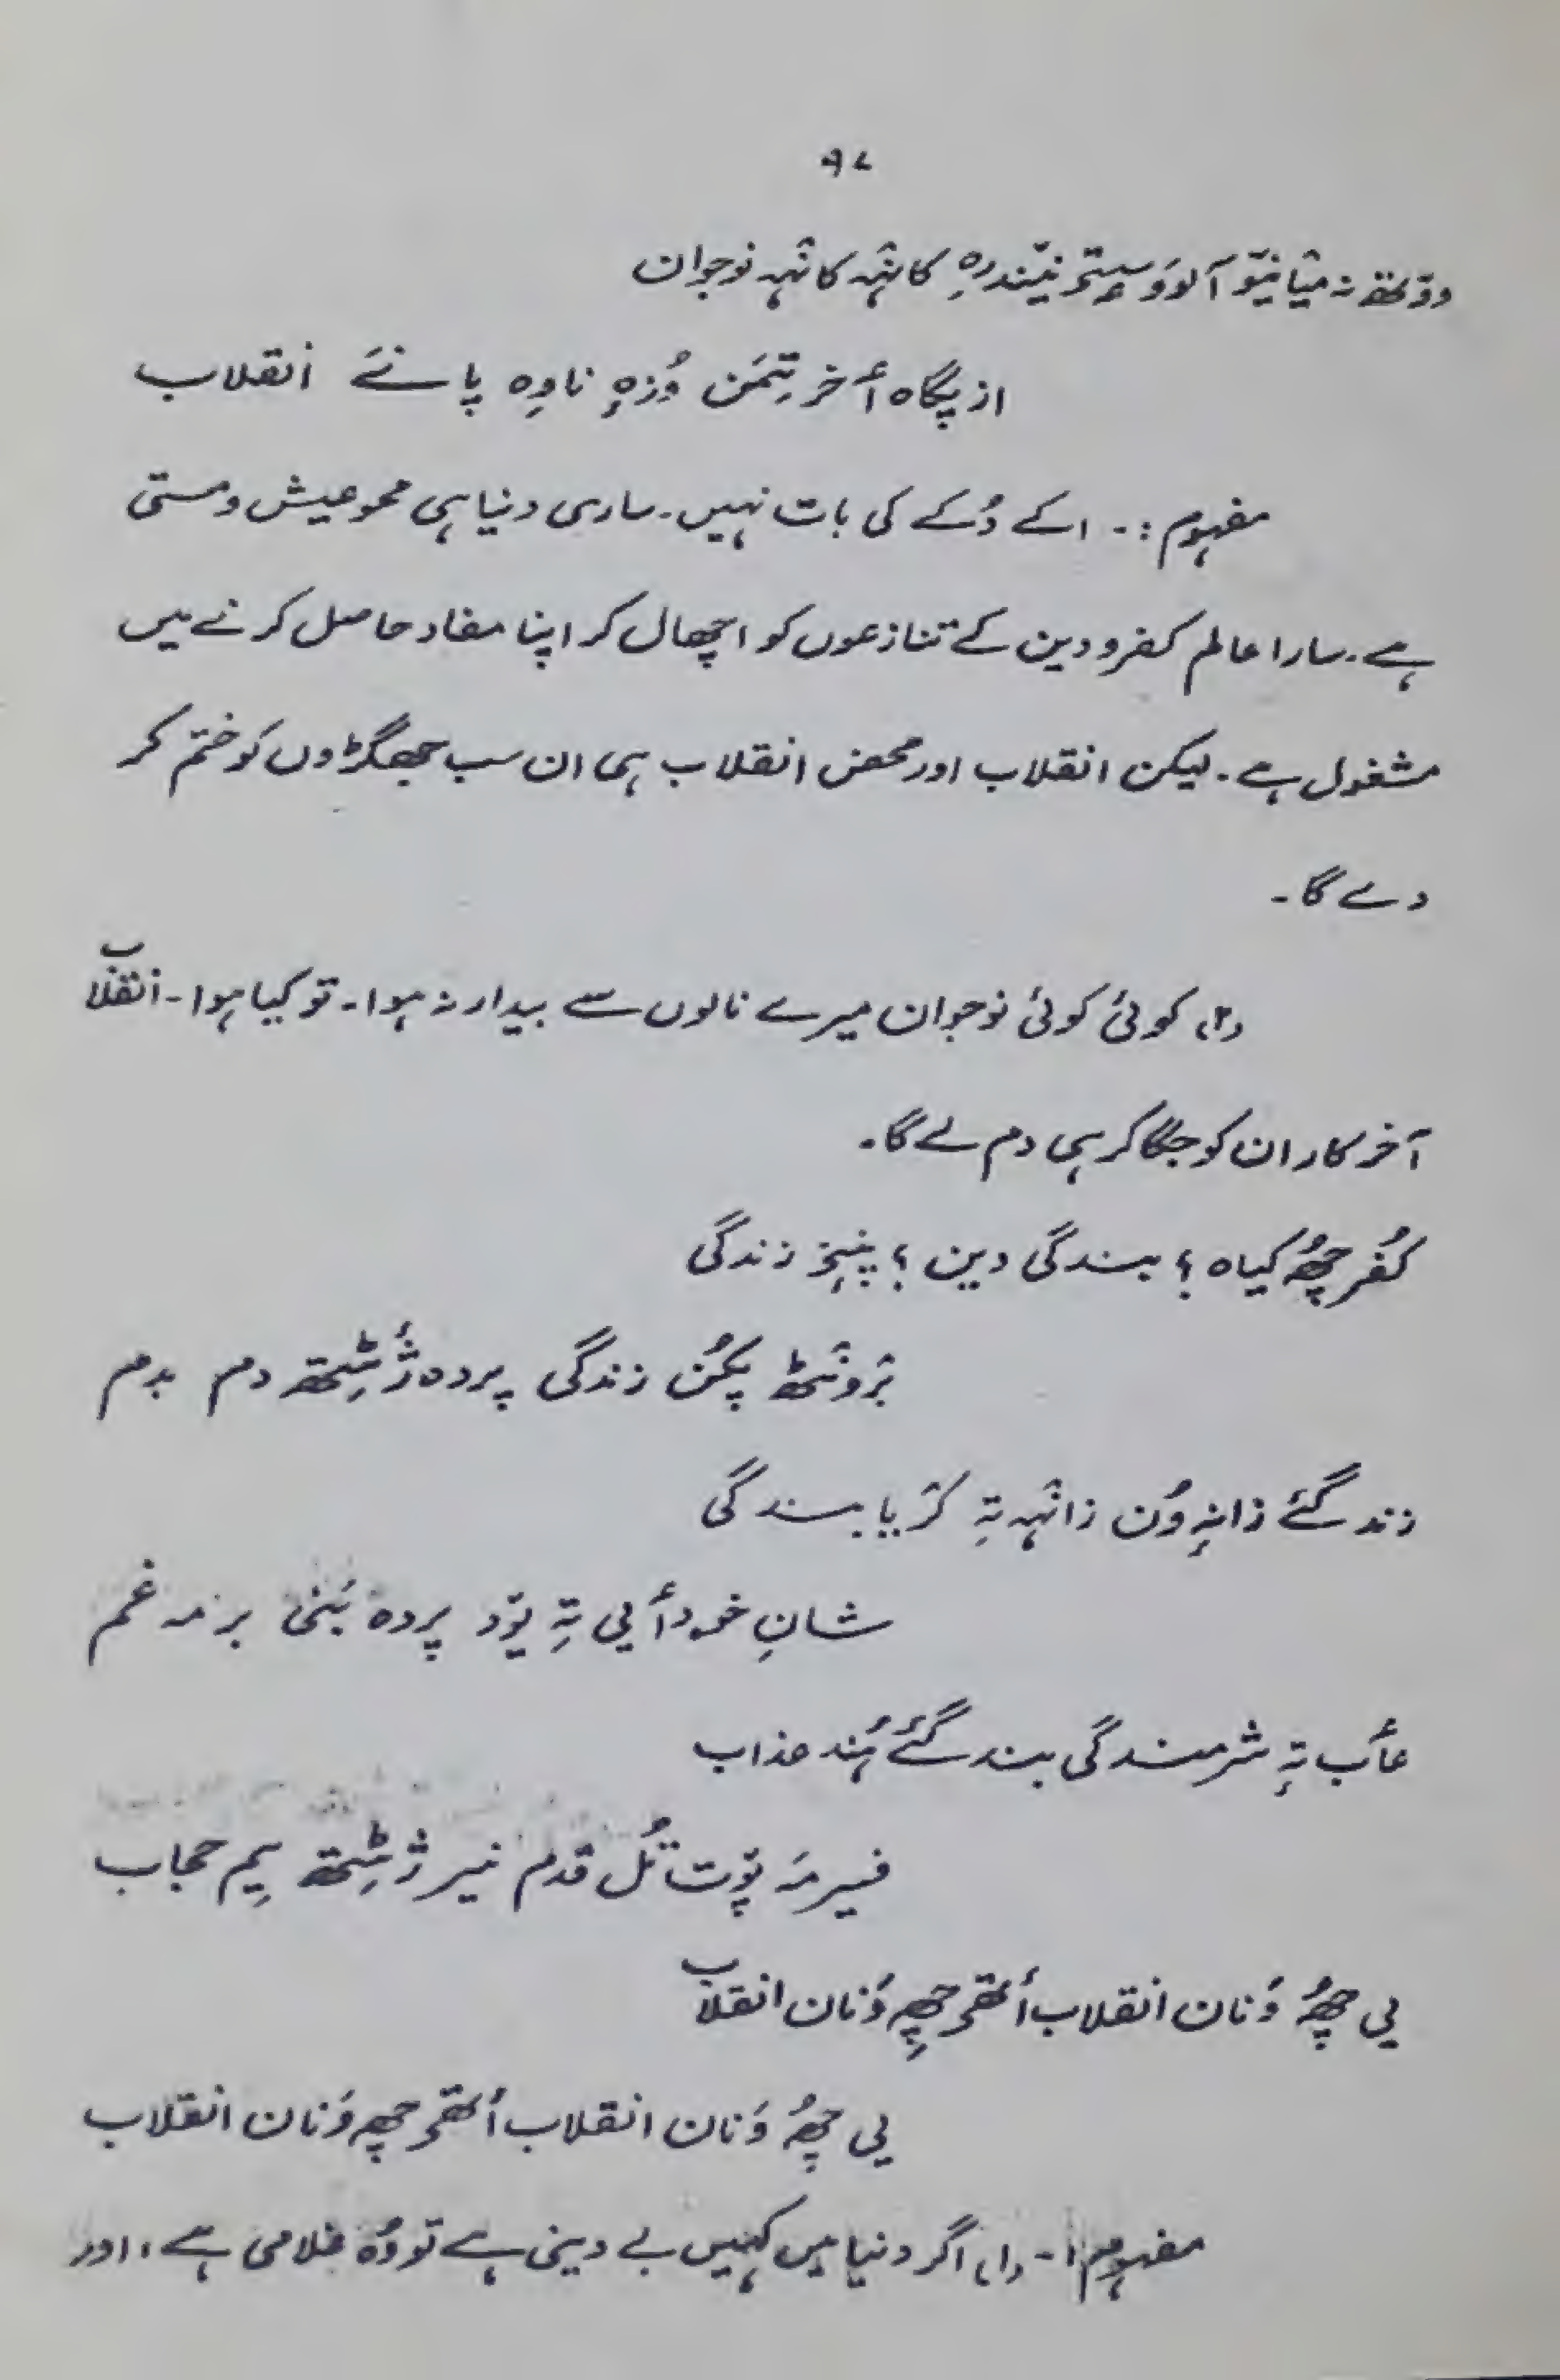 ۹۷
ووتھ نہ میانیو آلوَو سیتۍ نیندرِہ کانٛہہ کانٛہہ نوجوان
از پگاہ أخر تِمَن وُزہِ ناوِہ پانَے انقلاب
مفہوم :۔ اکے دُکے کی بات نہیں۔ ساری دنیا ہی محو عیش و مستی
ہے۔ سارا عالم کفر و دین کے تنازعوں کو اچھال کر اپنا مفاد حاصل کرنے میں
مشغول ہے۔ لیکن انقلاب اور محض انقلاب ہی ان سب جھگڑوں کو ختم کر
دے گا۔
(۲) کوئی کوئی نوجوان میرے نالوں سے بیدار نہ ہوا۔ تو کیا ہوا۔ انقلاب
آخر کار ان کو جگا کر ہی دم لے گا۔
کُفر چھُ کیاہ ؟ بندگی دین ؟ پنِنۍ زندگی
برَونٛٹھ پکُن زندگی پردہ ژٔٹِتھ دم بدم
زندگئے زانہِ وُن زانٛہہ تہِ کرَیا بندگی
شانِ خودأیی تہِ یوٚد پردہ بَنی بر مہ غم
عأب تہِ شرمندگی بندگئے ہُند عذاب
فیر مَہ پوٚت تُل قدم نیر ژٔٹِتھ یِم حجاب
یی چھُ وَنان انقلاب أتھۍ چھِ وَنان انقلاب
یی چھُ وَنان انقلاب أتھۍ چھِ وَنان انقلاب
مفہوم :۔ (۱) اگر دنیا میں کہیں بے دینی ہے تو وُہ غلامی ہے، اور